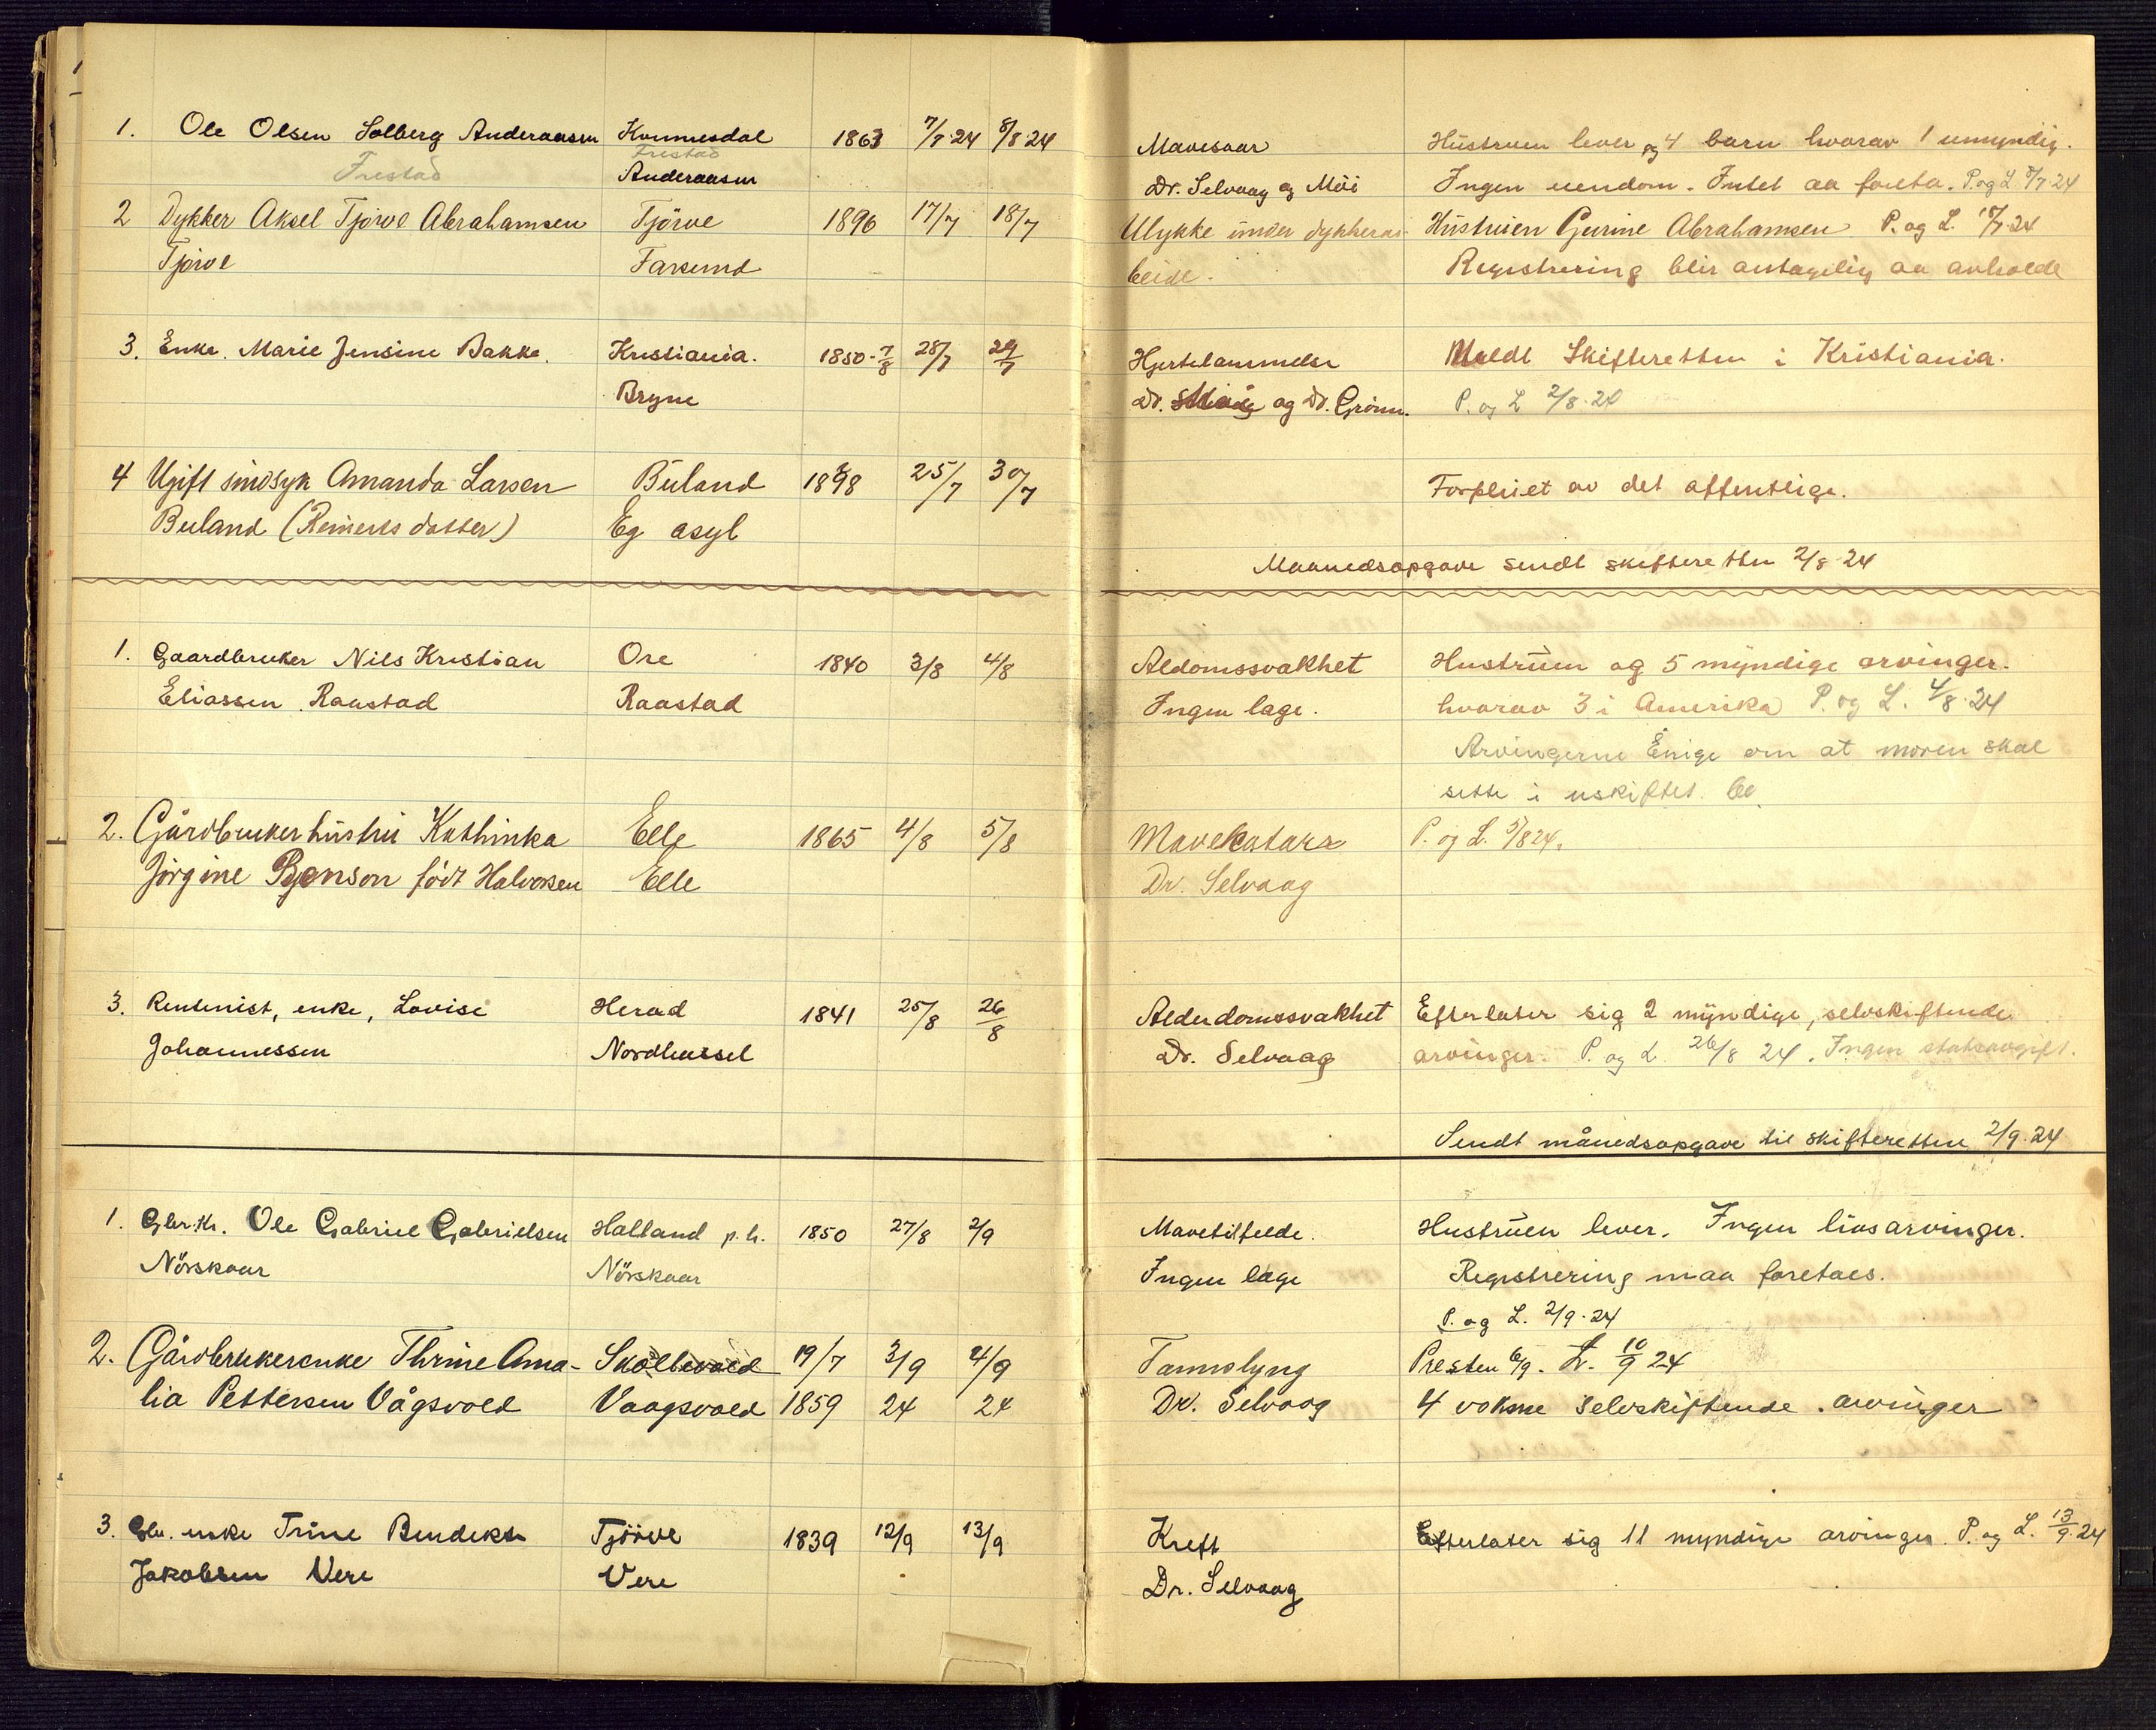 1. Ole Olsen Solberg Anderaasen Kvinesdal 1863 7/8·24 8/8·24 Mavesaar Hustruen lever og 4 barn hvorav 1 umyndig.
Frestad Frestad
Anderaasen Dr. Selvaag og Möi Ingen eiendom. Intet aa foreta. P. og L. 8/7 24
2 Dykker Aksel Tjörve Abrahamsen Tjörve 1896 17/7 18/7 Ulykke under dykkerar- Hustruen Gurine Abrahamsen P. og L. 18/7·24
Tjörve Farsund beide. Registrering blir antagelig aa avholde
3. Enke. Marie Jensine Bakke. Kristiania. 1850-7/8 28/7 29/7 Hjertelammelse Meldt Skifteretten i Kristiania.
Bryne Dr. og Dr. Grönn. P. og L 2/8·24
4 Ugift sindsyk Amanda Larsen Buland 1898 25/7 30/7 Forpleiet av det offentlige.
Buland (Reinertsdatter) Eg asyl
Maanedsopgave sendt skifteretten 2/8·24
1. Gaardbruker Nils Kristian Ore 1840 3/8 4/8 Aldomssvakhet Hustruen og 5 myndige arvinger.
Eliassen Raastad Raastad Ingen læge. hvorav 3 i Amerika P. og L. 4/8·24
Arvingerne Enige om at moren skal
sitte i uskiftet bo.
2. Gårdbrukerhustru Kathinka Elle 1865 4/8 5/8 Mavekatarr P. og L. 5/8 24.
Jörgine Benson födt Halvorsen Elle Dr. Selvaag
3. Rentenist, enke, Lovise Herad 1841 25/8 26/8 Alderdomssvakhet Efterlater sig 2 myndige, selvskiftende
Johannessen Nordhassel Dr. Selvaag arvinger. P. og L. 26/8 24. Ingen statsavgift.
Sendt månedsopgave til skifteretten 2/9·24
1. Gbr.kr. Ole Gabriel Gabrielsen Halland p.h. 1850 27/8 2/9 Mavetilfelde. Hustruen lever. Ingen livsarvinger.
Nörskaar Nörskaar Ingen læge Registrering maa foretaes.
P. og L. 2/9·24
2. Gårdbrukerenke Thrine Ama- Skollevold 19/7 3/9 4/9 Tarmslyng Presten 6/9. L. 10/9 24
lia Pettersen Vågsvold Vaagsvold 1859 24 24 Dr. Selvaag 4 voksne selvskiftende arvinger
3. Gbr. enke Trine Bendikte Tjörve 1839 12/9 13/9 Kreft Efterlater sig 11 myndige arvinger. P. og L. 13/9·24
Jakobsen Vere Vere Dr. Selvaag